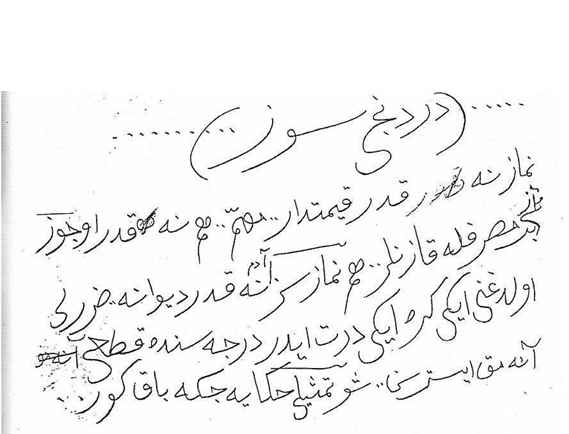 (دردنجی سوز)
نماز نه قدر قیمتدار.. مهمّ.. هم نه قدر اوجوز
بر مصرفله قازنلر.. هم نماز سز آدم نه قدر دیوانه.. ضررلی
اولدغنی ایکی کره ایکی درت ایدر درجه سنده قطعی
مق ایسترسڭ.. شو تمثیلی حکایه جکه باق کور...